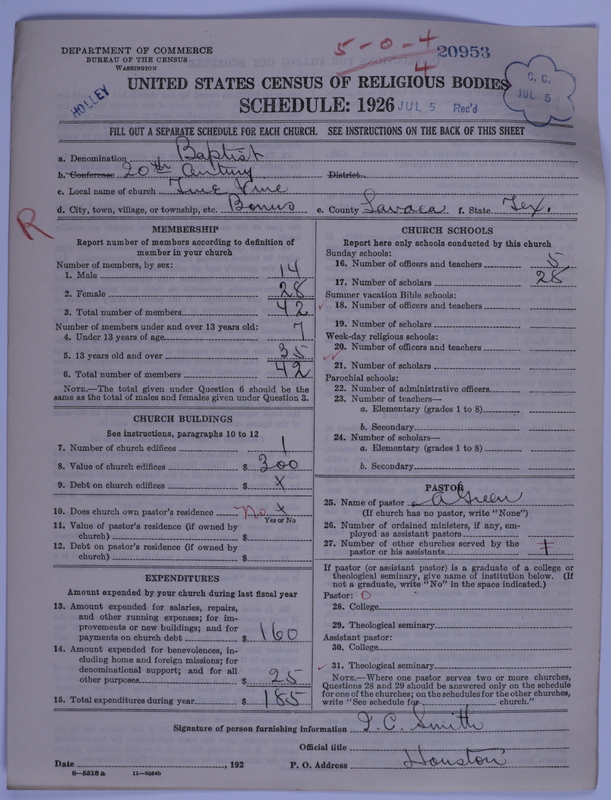 DEPARTMENT OF COMMERCE
BUREAU OF THE CENSUS
WASHINGTON
HOLLEY
5-0-4
4
20953
C. C.
JUL 5
UNITED STATES CENSUS OF RELIGIOUS BODIES
SCHEDULE: 1926 JUL 5 Rec'd
FILL OUT A SEPARATE SCHEDULE FOR EACH CHURCH. SEE INSTRUCTIONS ON THE BACK OF THIS SHEET
a. Denomination Baptist
b. Conference 20th Century District
c. Local name of church True Vine
d. City, town, village, or township, etc. Bonus e. County Lavaca f. State Tex.
R
MEMBERSHIP
Report number of members according to definition of
member in your church
Number of members, by sex:
1. Male 14
2. Female 28
3. Total number of members 42
Number of members under and over 13 years old:
4. Under 13 years of age 7
5. 13 years old and over 35
6. Total number of members 42
NOTE.—The total given under Question 6 should be the
same as the total of males and females given under Question 3.
CHURCH BUILDINGS
See instructions, paragraphs 10 to 12
7. Number of church edifices 1
8. Value of church edifices $ 300
9. Debt on church edifices $ x
10. Does church own pastor's residence No x
Yes or No
11. Value of pastor's residence (if owned by
church) $
12. Debt on pastor's residence (if owned by
church) $
EXPENDITURES
Amount expended by your church during last fiscal year
13. Amount expended for salaries, repairs,
and other running expenses; for im-
provements or new buildings; and for
payments on church debt $ 160
14. Amount expended for benevolences, in-
cluding home and foreign missions; for
denominational support; and for all
other purposes $ 25
15. Total expenditures during year $ 185
CHURCH SCHOOLS
Report here only schools conducted by this church
Sunday schools:
16. Number of officers and teachers 5
17. Number of scholars 28
Summer vacation Bible schools:
18. Number of officers and teachers
19. Number of scholars
Week-day religious schools:
20. Number of officers and teachers
21. Number of scholars
Parochial schools:
22. Number of administrative officers
23. Number of teachers—
a. Elementary (grades 1 to 8)
b. Secondary
24. Number of scholars—
a. Elementary (grades 1 to 8)
b. Secondary
PASTOR
25. Name of pastor A Green
(If church has no pastor, write "None")
26. Number of ordained ministers, if any, em-
ployed as assistant pastors
27. Number of other churches served by the
pastor or his assistants
If pastor (or assistant pastor) is a graduate of a college or
theological seminary, give name of institution below. (If
not a graduate, write "No" in the space indicated.)
Pastor: 0
28. College
29. Theological seminary
Assistant pastor:
30. College
31. Theological seminary
NOTE.—Where one pastor serves two or more churches,
Questions 28 and 29 should be answered only on the schedule
for one of the churches; on the schedules for the other churches,
write "See schedule for church."
Signature of person furnishing information J. C. Smith
Official title
Date , 192 P. O. Address Houston
8-5518a 11-9034b